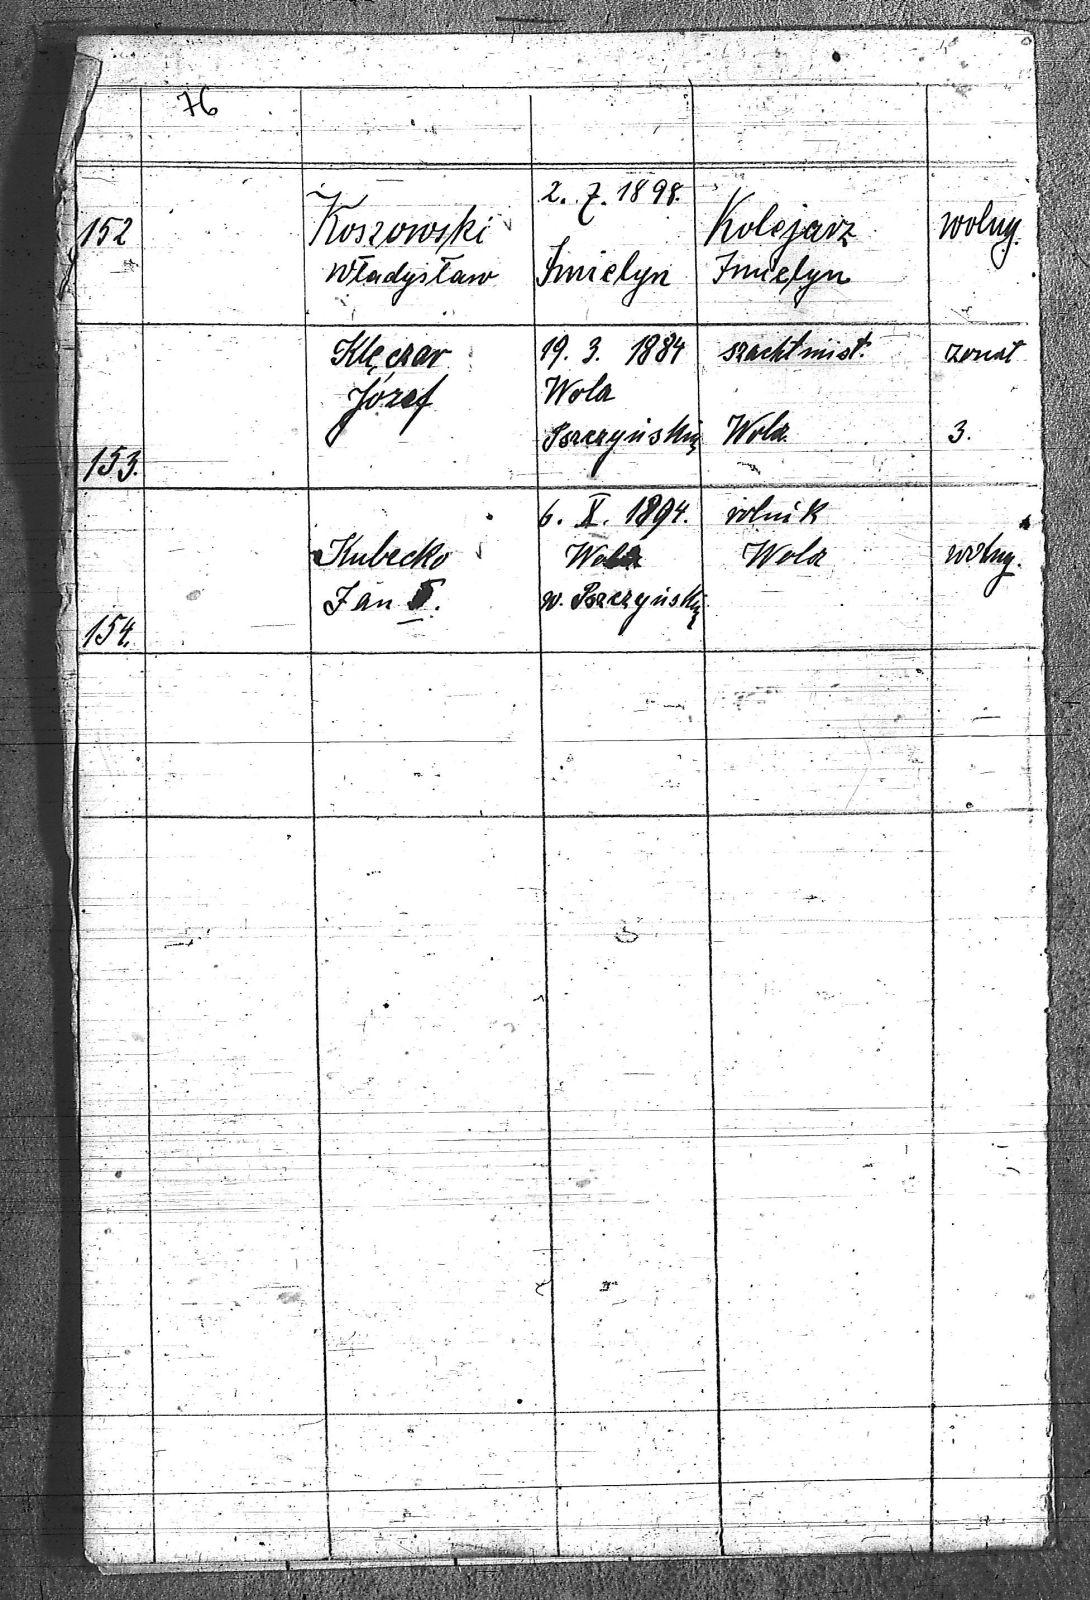 76
152
Koszowski
Władysław
2. 7. 1898.
Imielyn
Kolejarz
Imielyn
wolny.
153.
Klęczar
Józef
19. 3. 1884
Wola
Pszczyńską
szachtmist.
Wola
żonat
3.
154.
Kubecko
Jan II.
6. X. 1894.
Wola
w. Pszczyńską
rolnik
Wola
wolny.